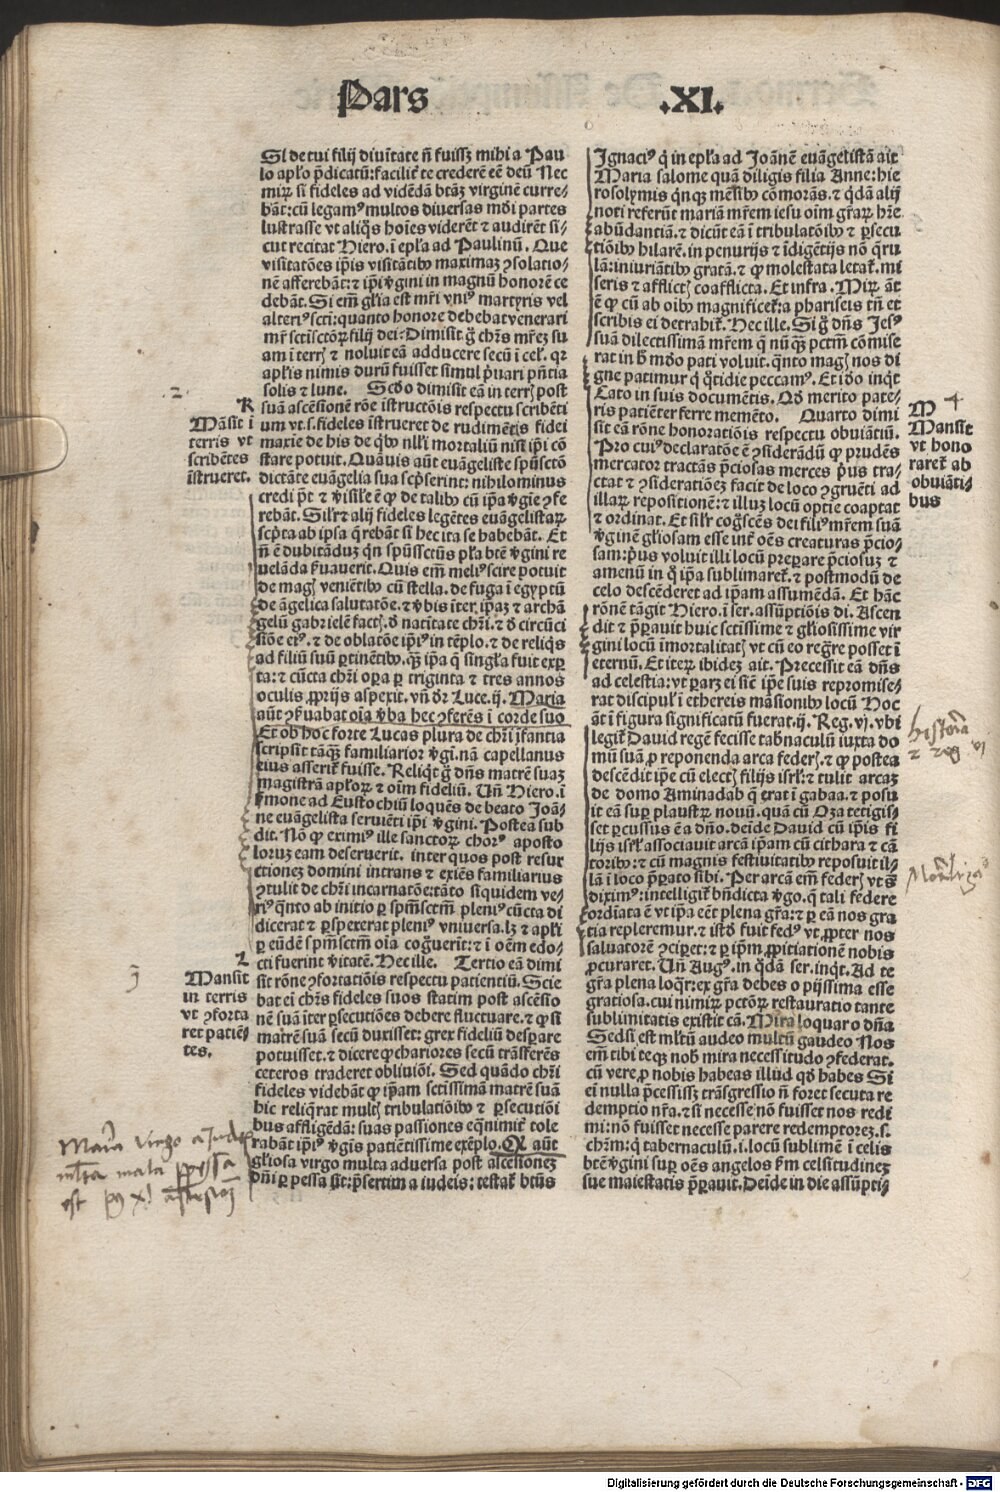 Pars .XI.
Si de tui filij diuītate ñ fuissz mihi a Pau
lo apl'o p̄dicatū: facilit' te crederē eē deū Nec
mirꝝ si fideles ad vidēdā btāȝ virginē curre-
bāt: cū legamꝰ multos diuersas mōi partes
lustrasse vt aliq̄s hoīes viderēt ⁊ audirēt si-
cut recitat Hiero. ī epl'a ad Paulinū. Que
visitatōes ip̄is visitātibꝰ maximaȝ ꝯsolatio-
nē afferebāt: ⁊ ip̄i v̄gini in magnū honorē ce
debāt. Si em̄ gl'ia est mr̄i vniꝰ martyris vel
alteriꝰ scti: quanto honore debebat venerari
mr̄ sctī sctoꝝ filij dei: Dimisit g̊ chr̄s mr̄eȝ su
am ī terrꝭ ⁊ noluit eā adducere secū ī cel'. qꝛ
apl'is nimis durū fuisset simul p̄uari p̄n̄tia
solis ⁊ lune. Scd̄o dimisit eā in terrꝭ post
suā ascēsionē rōe īstructōis respectu scribēti
um vt .s. fideles īstrueret de rudimētis fidei
maxīe de his de q̄bꝰ nll'i mortaliū nisi ip̄i cō
stare potuit. Quāuis aūt euāgeliste spūsctō
dictāte euāgelia sua sc̄pserint: nihilominus
credi p̄t ⁊ v̄sil'e ē ꝙ de talibꝰ cū ip̄a v̄gīe ꝯfe
rebāt. Sil'r ⁊ alij fideles legētes euāgelistaꝝ
sc̄pta ab ipsa q̄rebāt si hec ita se habebāt. Et
ñ ē dubitāduȝ q̄n spūssctūs pl'a btē v̄gini re
uelāda r̄uauerit. Quis em̄ meliꝰ scire potuit
de magꝭ veniētibꝰ cū stella. de fuga ī egyptū
de āgelica salutatōe. ⁊ v̄bis īter ip̄aȝ ⁊ archā
gelū gabrielē factꝭ. d̄ natītate chr̄i. ⁊ d̄ circūci
siōe eiꝰ. ⁊ de oblatōe ip̄iꝰ in tēplo. ⁊ de reliq̄s
ad filiū suū ꝑtinētibꝰ. q̄ȝ ip̄a q̄ singl'a fuit exꝑ
ta: ⁊ cūcta chr̄i oꝑa ꝑ triginta ⁊ tres annos
oculis ꝓprijs aspexit. vñ d̄r Luce .ij. Maria
aūt ꝯẜuabat oīa v̄ba hec ꝯferēs ī corde suo
Et ob hoc forte Lucas plura de chr̄i īfantia
scripsit tāq̄ȝ familiarior v̄gi. nā capellanus
eius asserit' fuisse. Reliq̄t g̊ dn̄s matrē suaȝ
magistrā apl'oꝝ ⁊ oīm fideliū. Uñ Hiero. ī
ẜmone ad Eustochiū loquēs de beato Joā-
ne euāgelista seruiēti ip̄i v̄gini. Postea sub
dit. Nō ꝙ eximiꝰ ille sanctoꝝ chorꝰ aposto
loruȝ eam deseruerit. inter quos post resur
ectioneȝ domini intrans ⁊ exiēs familiarius
ꝯtulit de chr̄i incarnatōe: tāto siquidem ve-
riꝰ q̄nto ab initio ꝑ spm̄sctm̄ pleniꝰ cūcta di
dicerat ⁊ ꝑspexerat pleniꝰ vniuersa. lȝ ⁊ apl'i
ꝑ eūdē spm̄sctm̄ oīa cog̊uerit: ⁊ ī oēm edo-
cti fuerint v̄itatē. Hec ille. Tertio eā dimi
sit rōne ꝯfortatiōis respectu patientiū. Scie
bat ei chr̄s fideles suos statim post ascēsio
nē suā īter ꝑsecutiōes debere fluctuare. ⁊ ꝙ si
matrē suā secū duxisset: grex fideliū desꝑare
potuisset. ⁊ dicere ꝙ chariores secū trāsferēs
ceteros traderet obliuiōi. Sed quādo chr̄i
fideles videbāt ꝙ ip̄am sctissimā matrē suā
hic reliq̄rat multꝭ tribulatiōibꝰ ⁊ ꝑsecutiōi
bus affligēdā: suas passiones eq̄nimit' tole
rabāt ip̄iꝰ v̄gīs patiētissime exēplo. Qꝛ aūt
gl'iosa virgo multa aduersa post ascēsioneȝ
dn̄i ꝑpessa sit: p̄sertim a iudeis: testat' btūs
K
Māsit ī
terris vt
scribētes
īstrueret.
L
Mansit
in terris
vt ꝯforta
ret patiē-
tes.
Maria virgo a Judeis
multa mala perpessa
est post xi ascensionē
Ignaciꝰ q̄ in epl'a ad Joānē euāgelistā ait
Maria salome quā diligis filia Anne: hie
rosolymis q̄nqȝ mēsibꝰ cōmorās. ⁊ q̄dā alij
noti referūt mariā mr̄em iesu oīm gr̄aꝝ hr̄e
abūdantiā. ⁊ dicūt eā ī tribulatōibꝰ ⁊ ꝑsecu
tiōibꝰ hilarē. in penurijs ⁊ īdigētijs nō q̄ru
lā: iniuriātibꝰ gratā. ⁊ ꝙ molestata letat'. mi
seris ⁊ afflictꝭ coafflicta. Et infra. Mirꝝ āt
ē ꝙ cū ab oībꝰ magnificet': a phariseis tn̄ et
scribis ei detrahit'. Hec ille. Si g̊ dn̄s Jesꝰ
suā dilectissimā mr̄em q̄ nūq̄ȝ pctm̄ cōmise
rat in h̄ mōo pati voluit. q̄nto magꝭ nos di
gne patimur q̄ q̄tidie peccamꝰ. Et iō inq̄t
Cato in suis documētis. Qd̄ merito pate-
ris patiēter ferre memēto. Quarto dimi
sit eā rōne honoratiōis respectu obuiātiū.
Pro cuiꝰ declaratōe ē ꝯsiderādū ꝙ prudēs
mercator tractās p̄ciosas merces p̄us tra-
ctat ⁊ ꝯsideratiōeȝ facit de loco ꝯgruēti ad
illaꝝ repositionē: ⁊ illuȝ locū optie coaptat
⁊ ordinat. Et sil'r cog̊scēs dei filiꝰ mr̄em suā
v̄ginē gl'iosam esse int' oēs creaturas p̄cio-
sam: p̄us voluit illi locū preparare p̄ciosuȝ ⁊
amenū in q̊ ip̄a sublimaret'. ⁊ postmodū de
celo descēderet ad ip̄am assumēdā. Et hāc
rōnē tāgit Hiero. ī ser. assūptiōis di. Ascen
dit ⁊ p̄parauit huic sctissime ⁊ gl'iosissime vir
gini locū īmortalitatꝭ vt cū eo reg̊re posset ī
eternū. Et iteꝝ ibideȝ ait. Precessit eā dn̄s
ad celestia: vt ꝑaꝝ ei siē ip̄e suis repromise-
rat discipul'ī ethereis māsionibꝰ locū Hoc
āt ī figura significatū fuerat .ij. Reg. vj. vbi
legit' David regē fecisse tabnaculū iuxta do
mū suā ꝓ reponenda arca federꝭ. ⁊ ꝙ postea
descēdit ip̄e cū electꝭ filijs isrl': ⁊ tulit arcaȝ
de domo Aminadab q̄ erat ī gabaa. ⁊ posu
it eā suꝑ plaustꝝ nouū. quā cū Oza tetigis-
set ꝑcussus ē a dn̄o. deīde Dauid cū ip̄is fi
lijs isrl' associauit arcā ip̄am cū cithara ⁊ cā
toribꝰ: ⁊ cū magnis festiuitatibꝰ reposuit il-
lā ī loco p̄parato sibi. Per arcā em̄ federꝭ vt s̄
diximꝰ: intelligit' bn̄dicta v̄go. q̄ tali federe
ordīata ē vt ip̄a eēt plena gr̄a: ⁊ ꝑ eā nos gra
tia repleremur. ⁊ istd̄ fuit fedꝰ vt ꝓpter nos
saluatorē ꝯciꝑet: ⁊ ꝑ ip̄m ꝓpitiationē nobis
ꝓcuraret. Uñ Augꝰ. in q̄dā ser. inq̄t. Ad te
gr̄a plena loq̄r: ex gr̄a debes o pijssima esse
gratiosa. cui nimirꝝ pctōꝝ restauratio tante
sublimitatis existit cā. Mira loquar o dn̄a
Sed si est ml'tū audeo multū gaudeo Nos
em̄ tibi teqȝ nob̄ mira necessitudo ꝯfederat.
cū vere ꝓ nobis habeas illud qd̄ habes Si
ei nulla p̄cessissȝ trāsgressio ñ foret secuta re
demptio nr̄a. ⁊ si necesse nō fuisset nos redi
mi: nō fuisset necesse parere redemptoreȝ .s.
chr̄m: q̄ tabernaculū .i. locū sublimē ī celis
btē v̄gini suꝑ oēs angelos ẜm celsitudineȝ
sue maiestatis p̄parauit. Deīde in die assūpti-
M 4
Mansit
vt hono
raret' ab
obuiāti-
bus
historia
2 reg vj
Digitalisierung gefördert durch die Deutsche Forschungsgemeinschaft - DFG